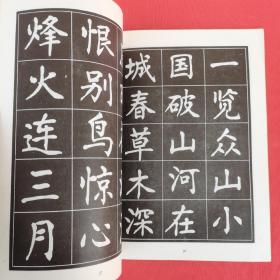 一览众山小
国破山河在
城春草木深
恨别鸟惊心
烽火连三月